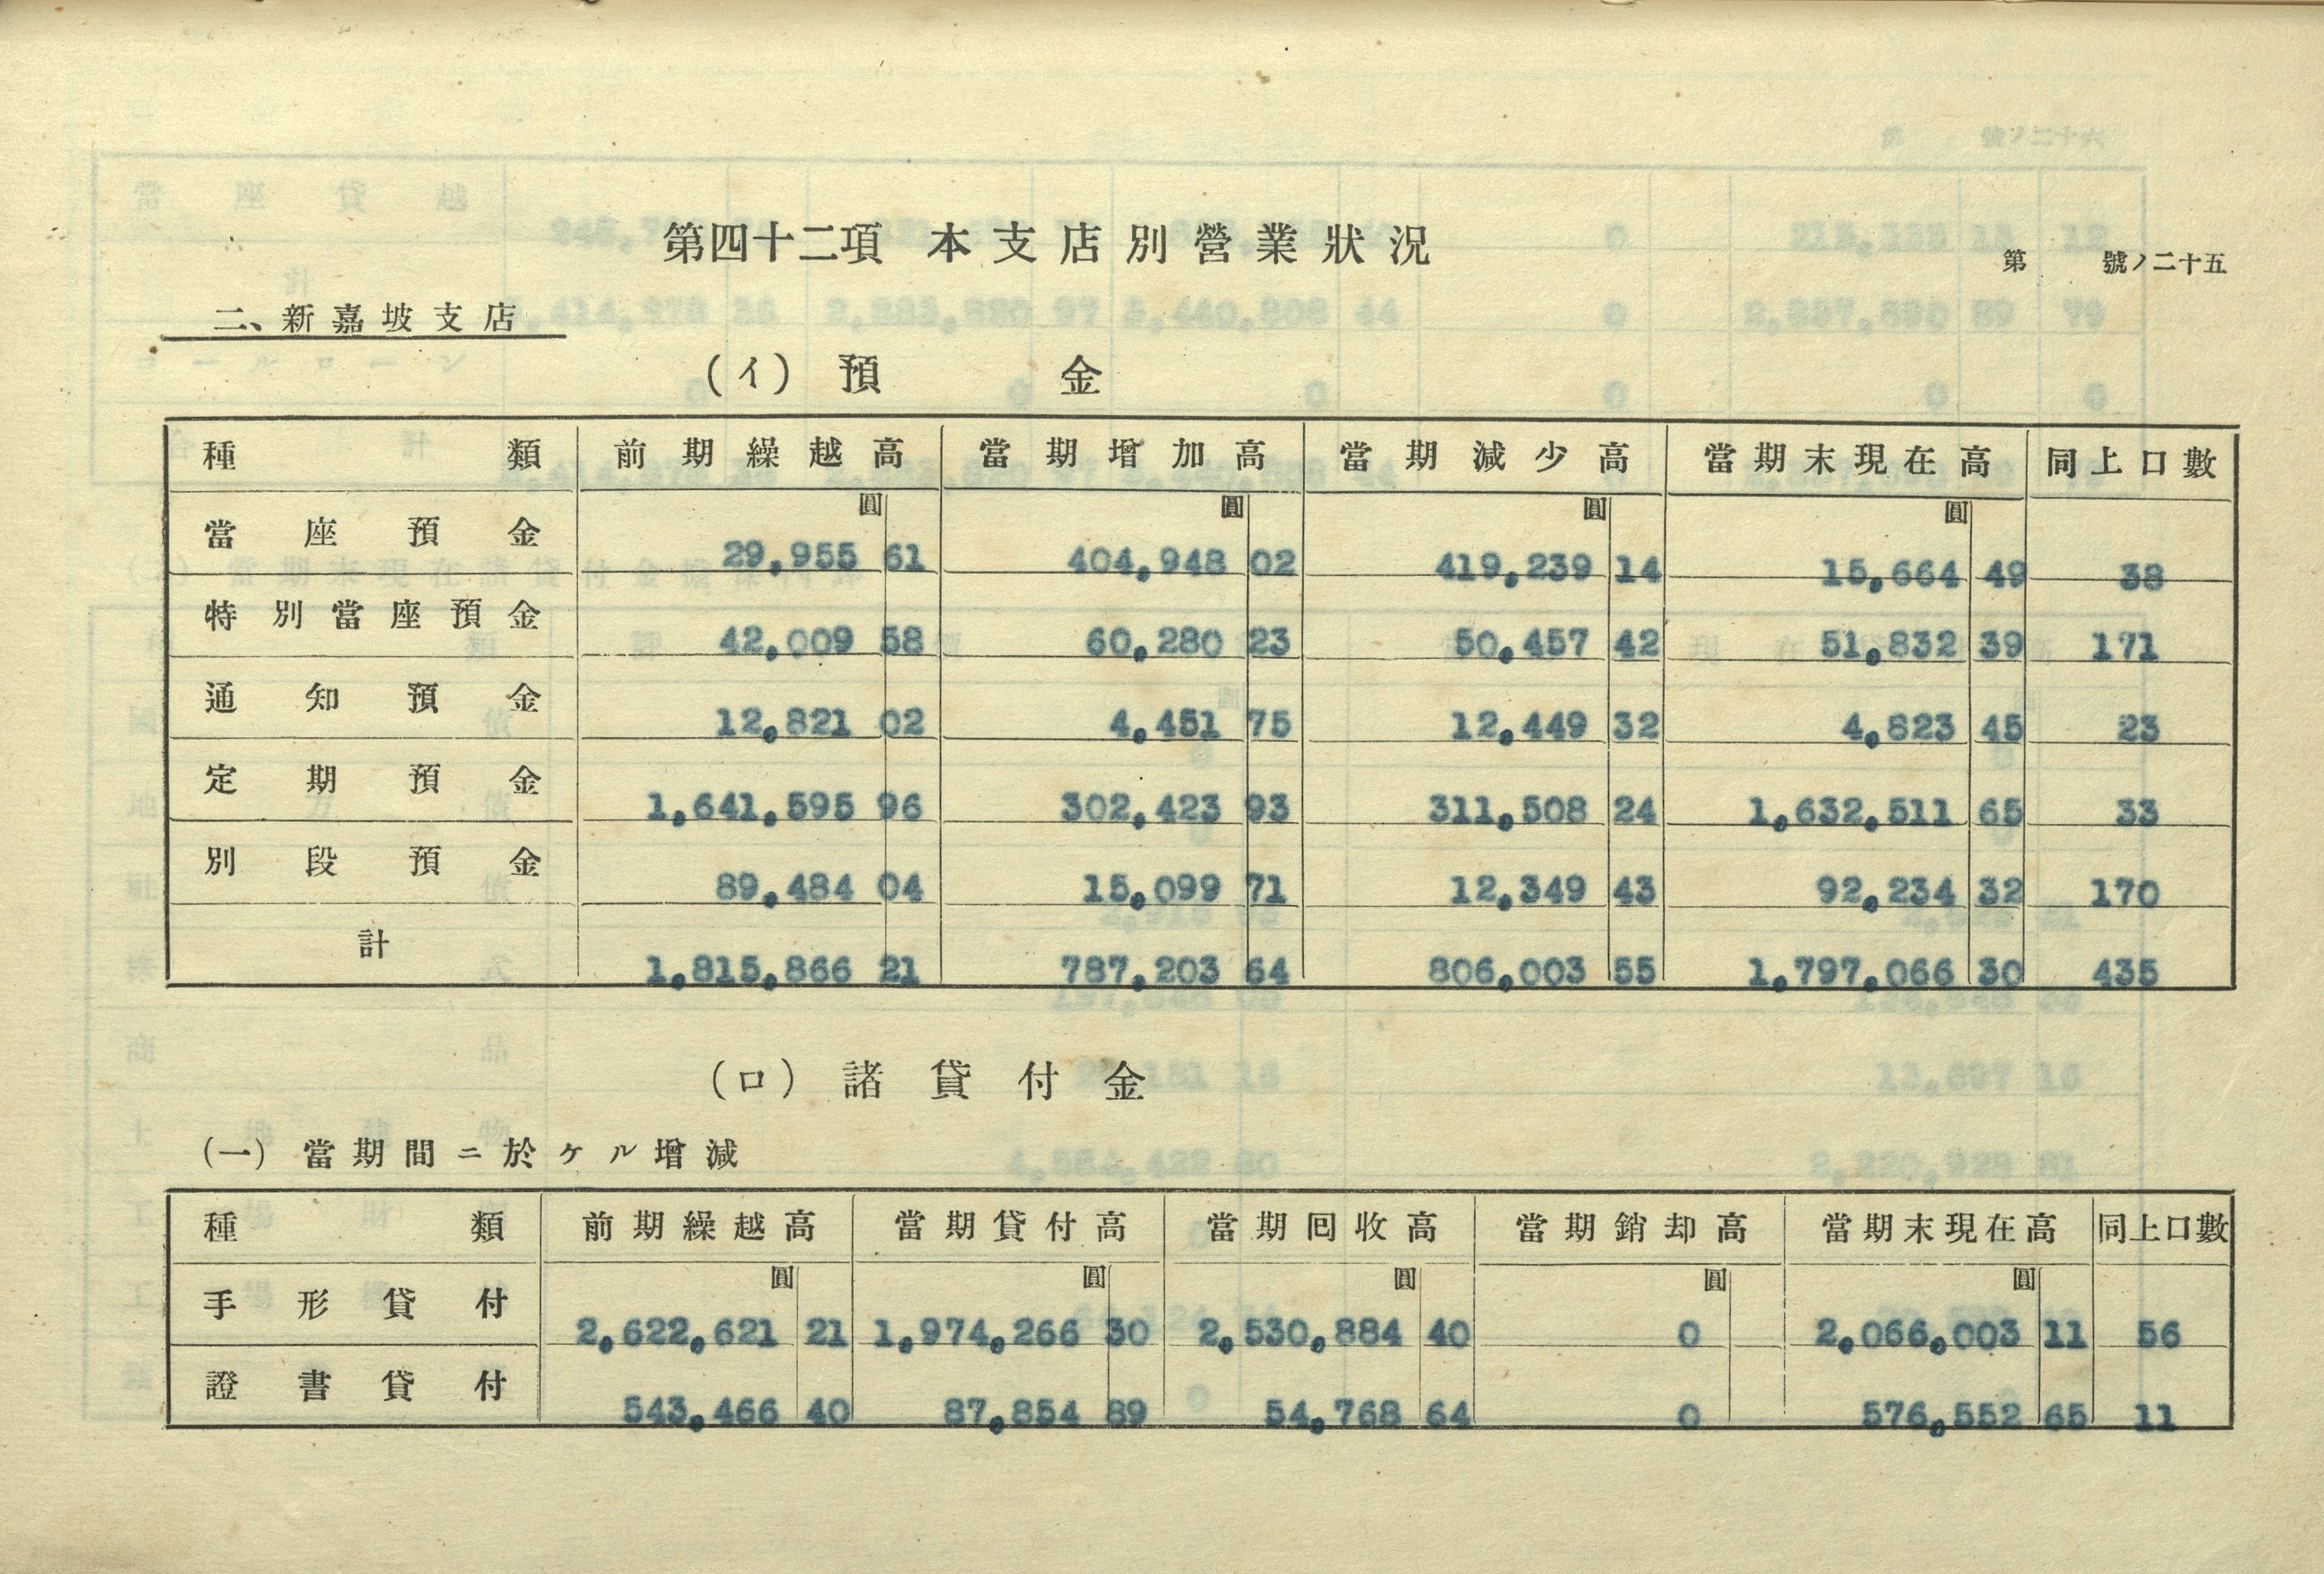 第四十二項 本支店別營業狀況
第 號ノ二十五
二、新嘉坡支店
(イ) 預金
種類 前期繰越高 當期增加高 當期減少高 當期末現在高 同上口數
圓 圓 圓 圓
當座預金 29,955 61 404,948 02 419,239 14 15,664 49 38
特別當座預金 42,009 58 60,280 23 50,457 42 51,832 39 171
通知預金 12,821 02 4,451 75 12,449 32 4,823 45 23
定期預金 1,641,595 96 302,423 93 311,508 24 1,632,511 65 33
別段預金 89,484 04 15,099 71 12,349 43 92,234 32 170
計 1,815,866 21 787,203 64 806,003 55 1,797,066 30 435
(ロ) 諸貸付金
(一) 當期間ニ於ケル增減
種類 前期繰越高 當期貸付高 當期囘收高 當期銷却高 當期末現在高 同上口數
圓 圓 圓 圓 圓
手形貸付 2,622,621 21 1,974,266 30 2,530,884 40 0 2,066,003 11 56
證書貸付 543,466 40 87,854 89 54,768 64 0 576,552 65 11